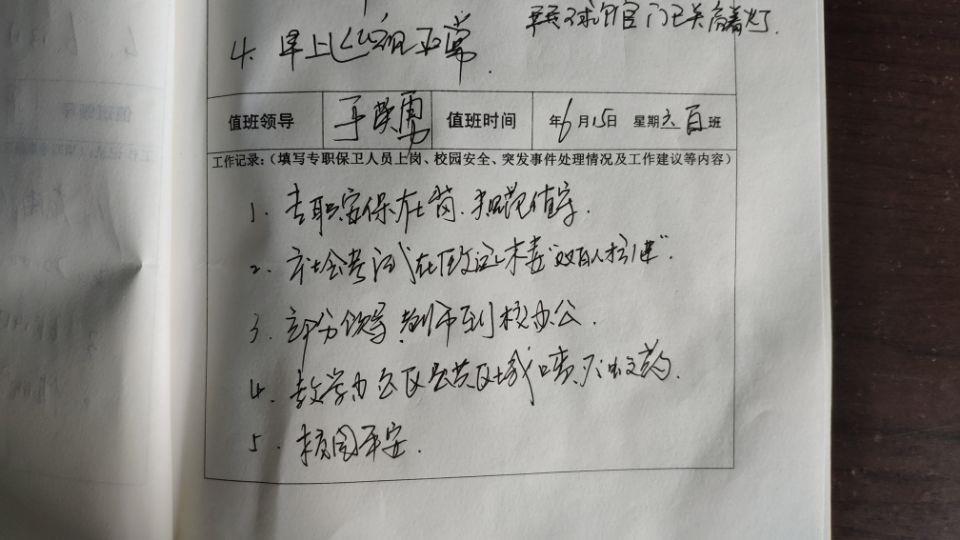 门已关 有着灯.
4. 早上巡视正常.
值班领导 于荣勇 值班时间 年6月15日 星期六 白班
工作记录:(填写专职保卫人员上岗、校园安全、突发事件处理情况及工作建议等内容)
1. 专职安保在岗、规范值守.
2. 社会考试在
3. 部分领导、教师到校办公.
4. 教学办公区公共区域喷灭蚊药.
5. 校园平安.